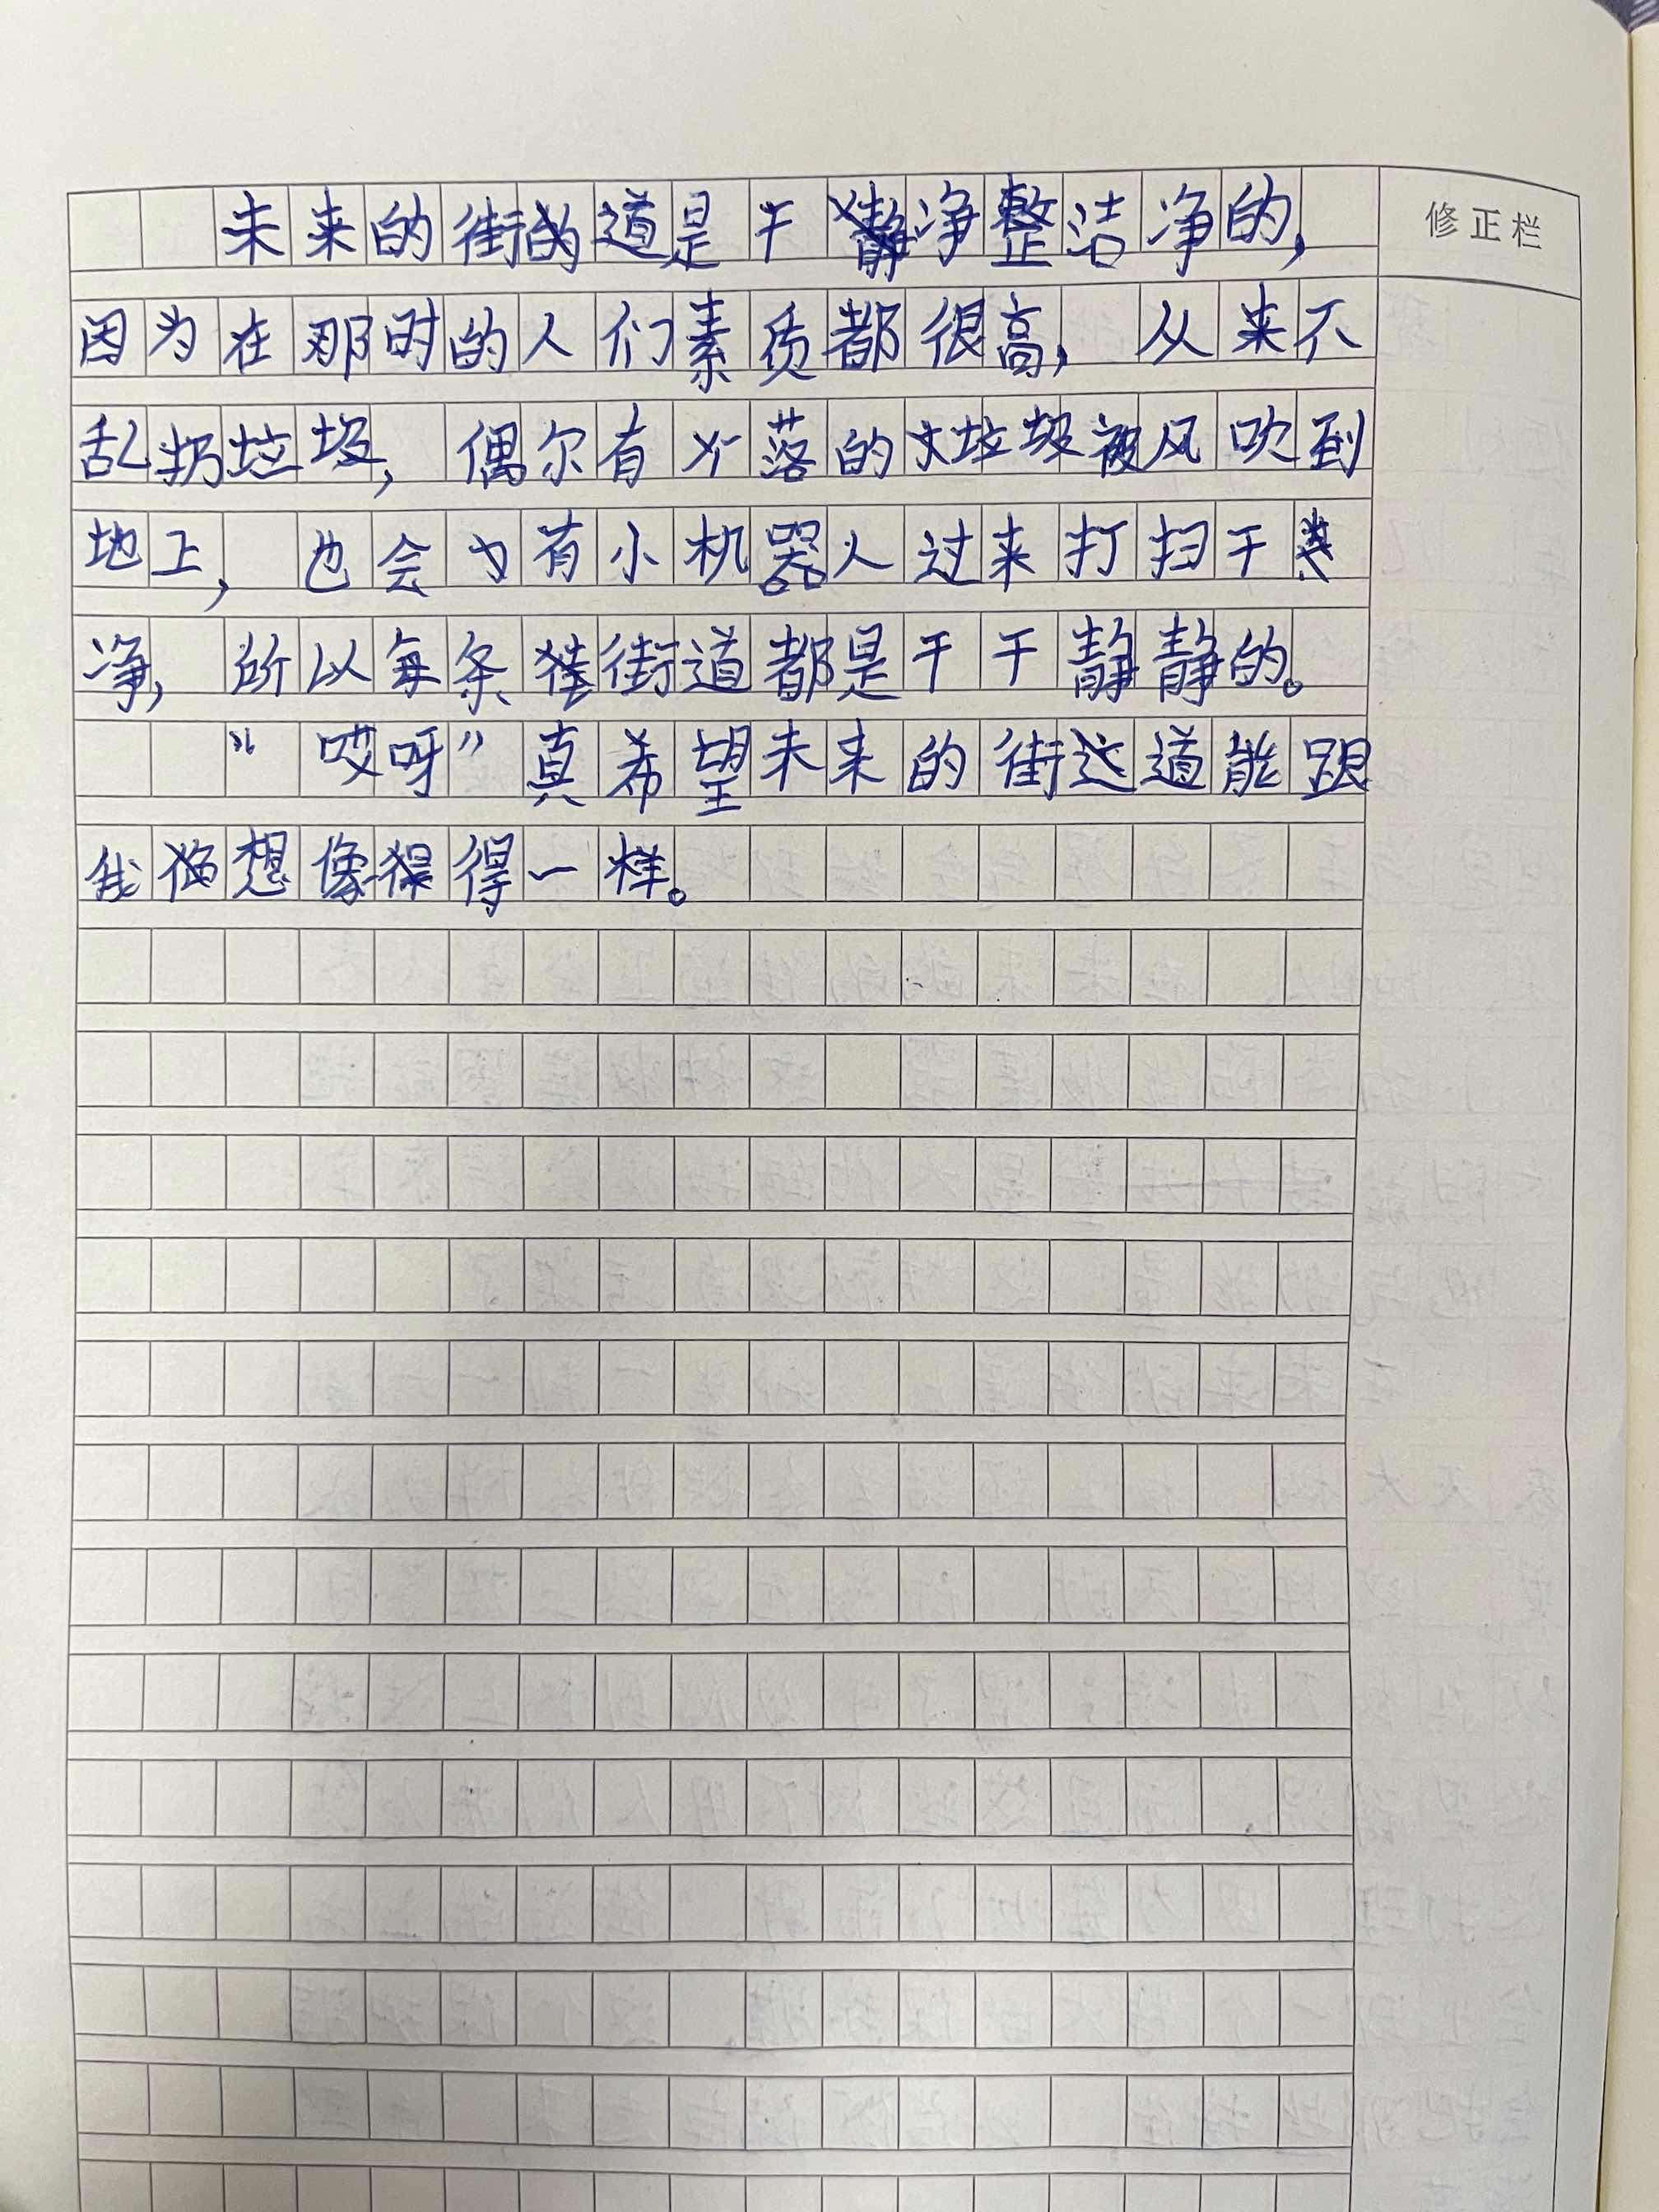 未来的街道是干净整洁净的,
修正栏
因为在那时的人们素质都很高,从来不
乱扔垃圾,偶尔有落的垃圾被风吹到
地上,也会有小机器人过来打扫干
净,所以每条街道都是干干静静的。
“哎呀”真希望未来的街道能跟
我想像得一样。